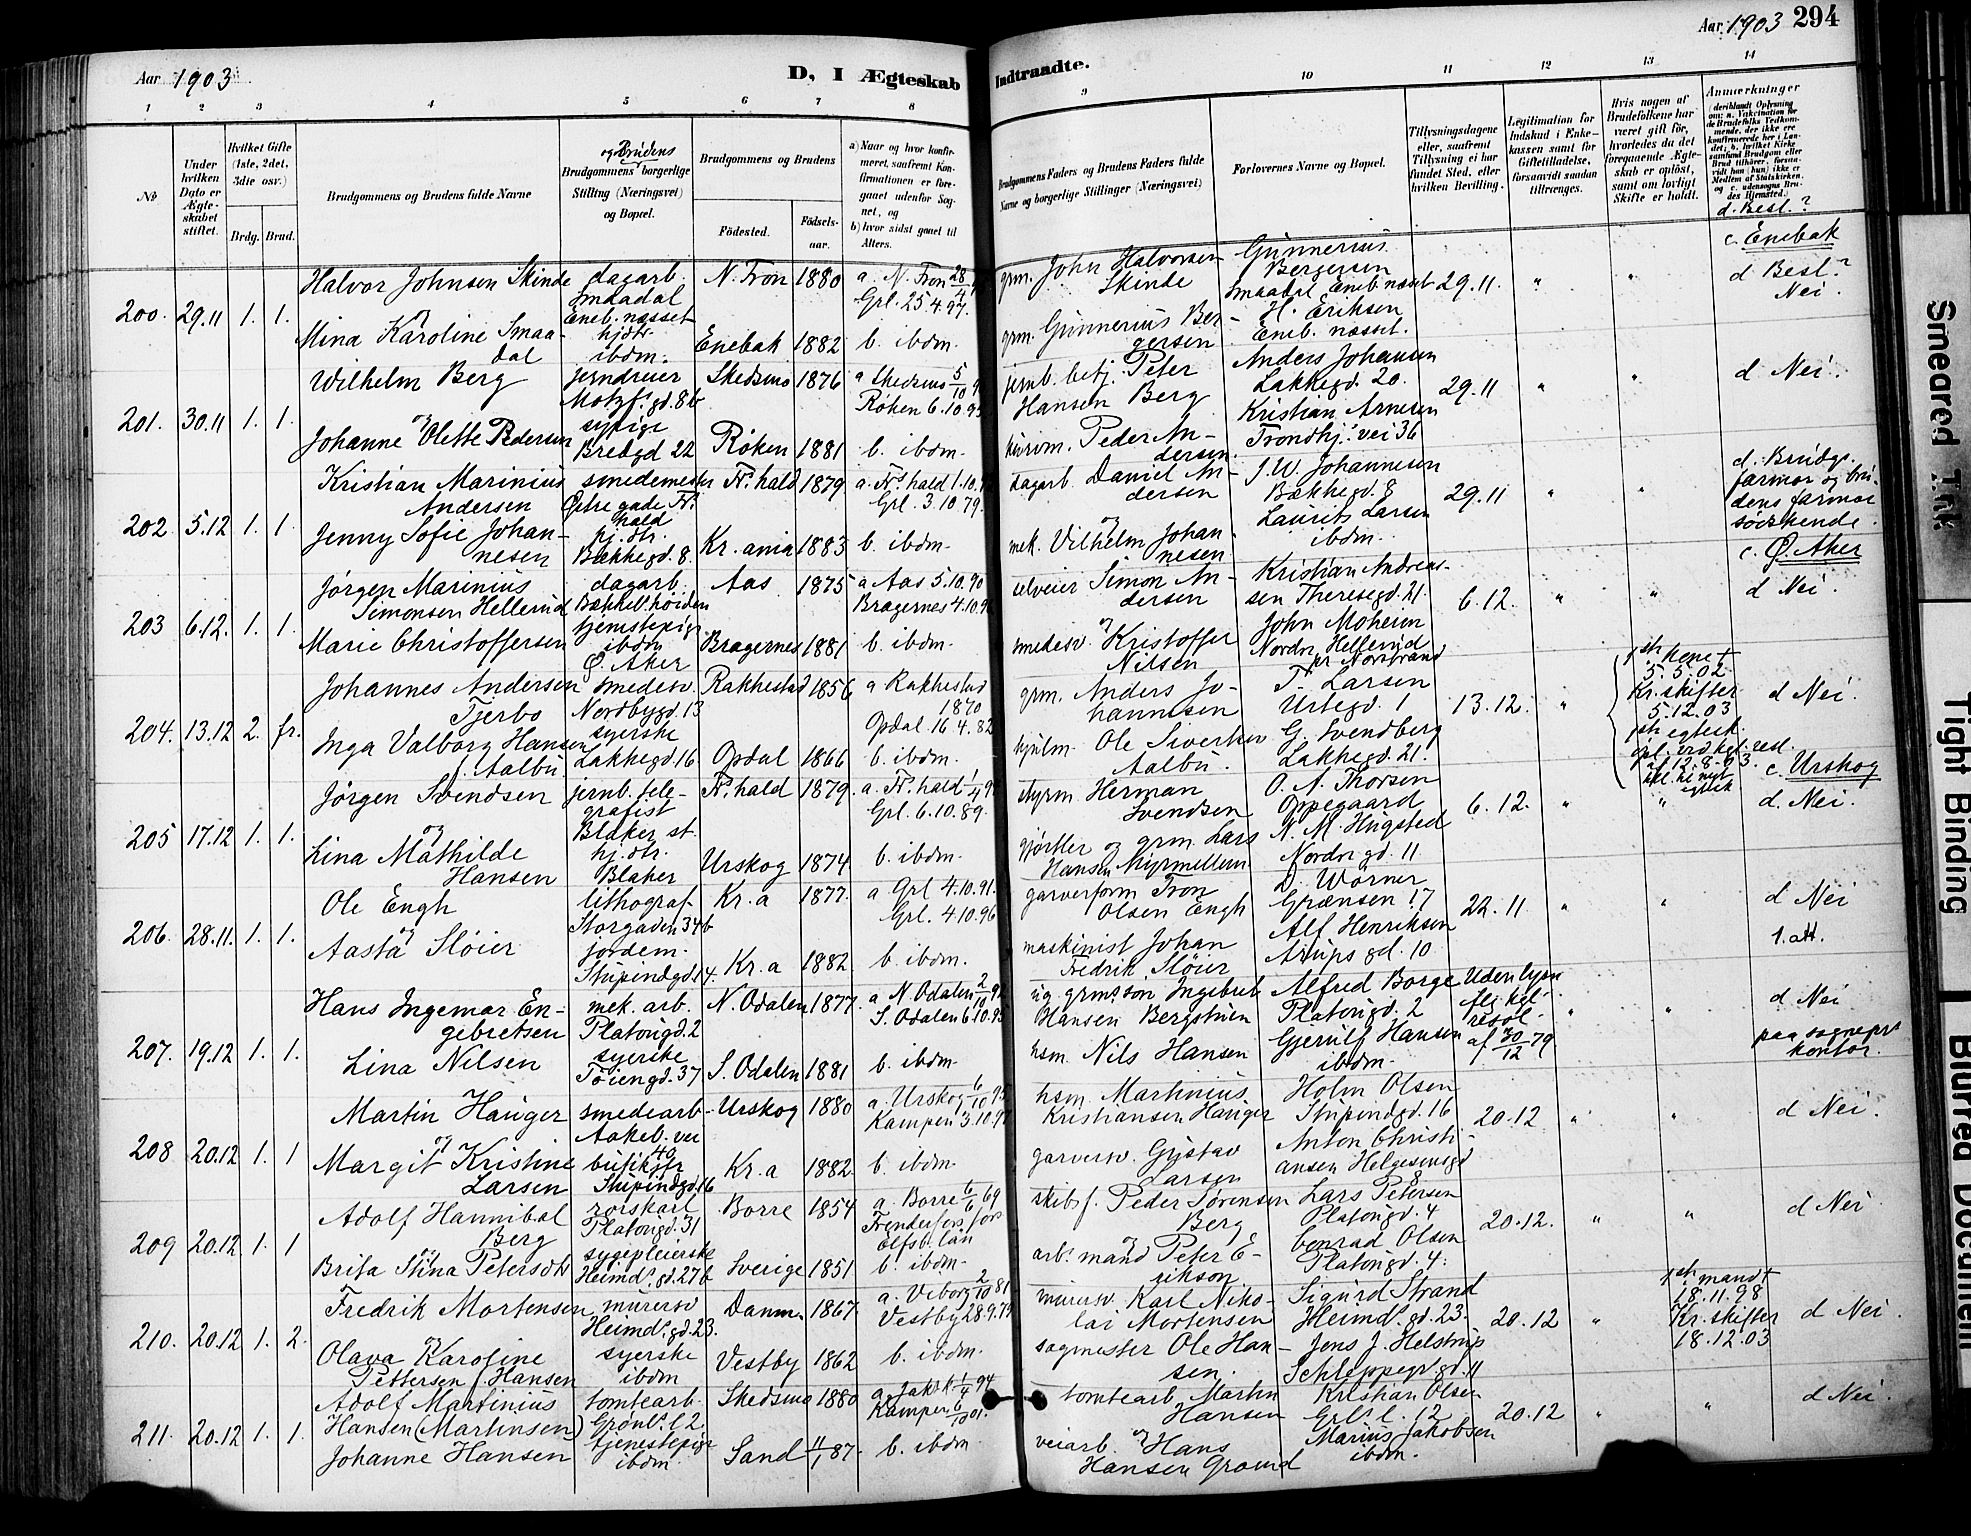 Aar 1903
D, I Ægteskab Indtraadte.
Aar 1903 294
1 2 3 4 5 6 7 8 9 10 11 12 13 14
No
Under hvilken Dato er Ægteskabet stiftet.
Hvilket Gifte (1ste, 2det, 3dte osv.)
Brdg. Brud.
Brudgommens og Brudens fulde Navne
og Brudens
Brudgommens borgerlige Stilling (Næringsvei) og Bopæl.
Brudgommens og Brudens
Födested.
Födsels-aar.
a) Naar og hvor konfirmeret, saafremt Konfirmationen er foregaaet udenfor Sognet, og
b) hvor sidst gaaet til Alters.
Brudgommens Faders og Brudens Faders fulde Navne og borgerlige Stillinger (Næringsvei)
Forlovernes Navne og Bopæl.
Tillysningsdagene eller, saafremt Tillysning ei har fundet Sted, efter hvilken Bevilling.
Legitimation for Indskud i Enkekassen samt for Giftetilladelse, forsaavidt saadan tiltrænges.
Hvis nogen af Brudefolkene har været gift för, hvorledes da det foregaaende Ægteskab er oplöst, samt om lovligt Skifte er holdt.
Anmærkninger
d. Besl.?
200. 29.11 1. 1.
Halvor Johnsen Skinde dagarb. N. Fron 1880 a. N. Fron 28/4
Smaadal Eneb. næsset Grl. 25.4.97.
og
Mina Karoline Smaadal hjdtr. ibdm. Enebak 1882 b. ibdm.
grm. John Halvorsen Skinde
grm. Gunnerius Bergersen
Gunnerius Bergersen Smaadal Eneb. næsset
H. Eriksen Eneb. næsset.
29.11. " "
c. Enebak
d Besl.? Nei.
201. 30.11 1. 1.
Wilhelm Berg jerndreier Motzf. gd. 8b Skedsmo 1876 a Skedsmo 5/10
Røken 6.10.95
og
Johanne Olette Pedersen sypige Bredgd 22 Røken 1881 b. ibdm.
jernb. betj. Peter Hansen Berg
husm. Peder Andersen
Anders Johansen Lakkegd. 20.
Kristian Arnesen Trondhj. vei 36
29.11 " "
d Nei.
202. 5.12 1. 1.
Kristian Marinius Andersen smedemester Østre gade Fr. hald Fr. hald 1879 a. Fr. hald 1.10.
Grl. 3.10.79.
Jenny Sofie Johannesen hj. dtr. Bakkegd. 8. Kr. ania 1883 b. ibdm.
dagarb. Daniel Andersen
og
mek. Vilhelm Johannesen
J. W. Johannesen Bakkegd. 8
Laurits Larsen ibdm.
29.11 " "
d. Brudg. farmor og brudens farmor södskende.
203 6.12. 1. 1.
Jørgen Marinius Simonsen Hellerud dagarb. Bækkel. høiden Aas 1875 a Aas 5.10.90
Bragernes 4.10.9
Marie Christoffersen tjenestepige ibdm Ø. Aker Bragernes 1881 b. ibdm.
selveier Simon Andersen
og
smedesv. Kristoffer Nilsen
Kristian Andreassen Theresegd. 21.
John Moheren Nordre Hellerud pr Norstrand
6.12. " "
c. Ø. Aker
d Nei.
204. 13.12 2. fr.
Johannes Andersen Tjerbo smedesv. Nordbygd. 13 Rakkestad 1856 a Rakkestad 1870
Opdal 16.4.82
Inga Valborg Hansen f. Aalbu syerske Lakkegd 16 Opdal 1866 b. ibdm.
grm. Anders Johannesen
hjulm. Ole Sivertsen Aalbu.
T. Larsen Urtegd. 1
G. Svendberg Lakkegd. 21.
13.12. "
1ste kone † 5.5.02 Kr. skifter 5.12.03
1ste egtesk. opl. ved kgl. resl. af 12.8.03.
d Nei.
205 17.12 1. 1.
Jørgen Svendsen jernb. telegrafist Blaker st. Fr. hald 1879. a. Fr. hald 1/4
Grl. 6.10.89.
og
Lina Mathilde Hansen hj. dtr. Blaker Urskog 1874 b. ibdm.
styrm. Herman Svendsen
gjørtler og grm. Lars Hansen Myrmellem
O. A. Thorsen Oppegaard
N. M. Hugsted Nordre gd. 11.
6.12. " "
c. Urskog
d. Nei.
206. 28.11. 1. 1.
Ole Engh lithograf Storgaden 34b Kr. a 1877. a Grl 4.10.91.
Grl. 4.10.96
og
Aasta Sløier jordem. Stupindgd. 14. Kr. a 1882. b. ibdm.
garverform. Tron Olsen Engh
maskinist Johan Fredrik Sløier
D. Wörner Grænsen 17
Alf Henriksen Arups gd. 10.
22.11. " "
d Nei
1. att.
207. 19.12 1. 1.
Hans Ingemar Engebretsen mek. arb. Platougd. 2 N. Odalen 1877. a N. Odalen 2/10
S. Odalen 6.10.95
Lina Nilsen syerske Tøiengd. 37 S. Odalen 1881 b. ibdm.
ug grmssøn Ingebret Hansen Bergstuen
hsm. Nils Hansen
Alfred Borge Platougd. 2
Gjerulf Hansen ibdm.
Uden lysn flg. kgl. resol. af 30/12 79
" "
d Nei
paa sognepr. kontor.
208 20.12 1. 1
Martin Hauger smedearb. Aakeb. vei 40 Urskog 1880 a. Urskog 6/10 95
Kampen 3.10.97
og
Margit Kristine Larsen butikjfr Stupindgd. 16 Kr. a 1882. b. ibdm.
hsm. Martinius Kristiansen Hauger
garversv. Gustav Larsen
Holm Olsen Stupindgd. 16
Anton Christiansen Helgesensgd 8
20.12 " "
d Nei.
209 20.12 1. 1
Adolf Hannibal Berg rorskarl Platougd. 31 Borre 1854 a. Borre 6/6 69
Elfsb. län
og
Brita Stina Petersdtr sygepleierske Heimds. gd. 27b Sverige 1851 b. ibdm.
skibsf. Peder Sørensen Berg
og
arb. mand Peter Erikson
Lars Petersen Platougd. 4
Conrad Olsen Platougd. 4.
20.12. " "
d Nei.
210. 20.12 1. 2.
Fredrik Mortensen murersv Heimds. gd. 23. Danm. 1867. a. Viborg 2/10 81
Vestby 28.9.7
og
Olava Karoline Pettersen f. Hansen syerske ibdm Vestby 1862 b. ibdm.
murersv. Karl Nikolai Mortensen
sagmester Ole Hansen.
Sigurd Strand Heimds. gd. 23.
Jens J. Helstrup Schleppegr. gd. 11
20.12 "
1ste mand † 18.11.98 Kr. skifter 18.12.03
d Nei.
211. 20.12 1. 1.
Adolf Martinius Hansen (Martinsen) tomtearb. Grønls. l. 2 Skedsmo 1880 a. Jak. k. 1/4 94
Kampen 6/10 01.
Johanne Hansen tjenestepige ibdm Sand 11/1 87. b. ibdm
tomtearb. Martin Hansen
og
veiarb. Hans Hansen Graund
Kristian Olsen Grls. l. 12
Marius Jakobsen ibdm.
20.12 " "
d Nei.
Smeared Ink
Tight Binding
Blurred Document